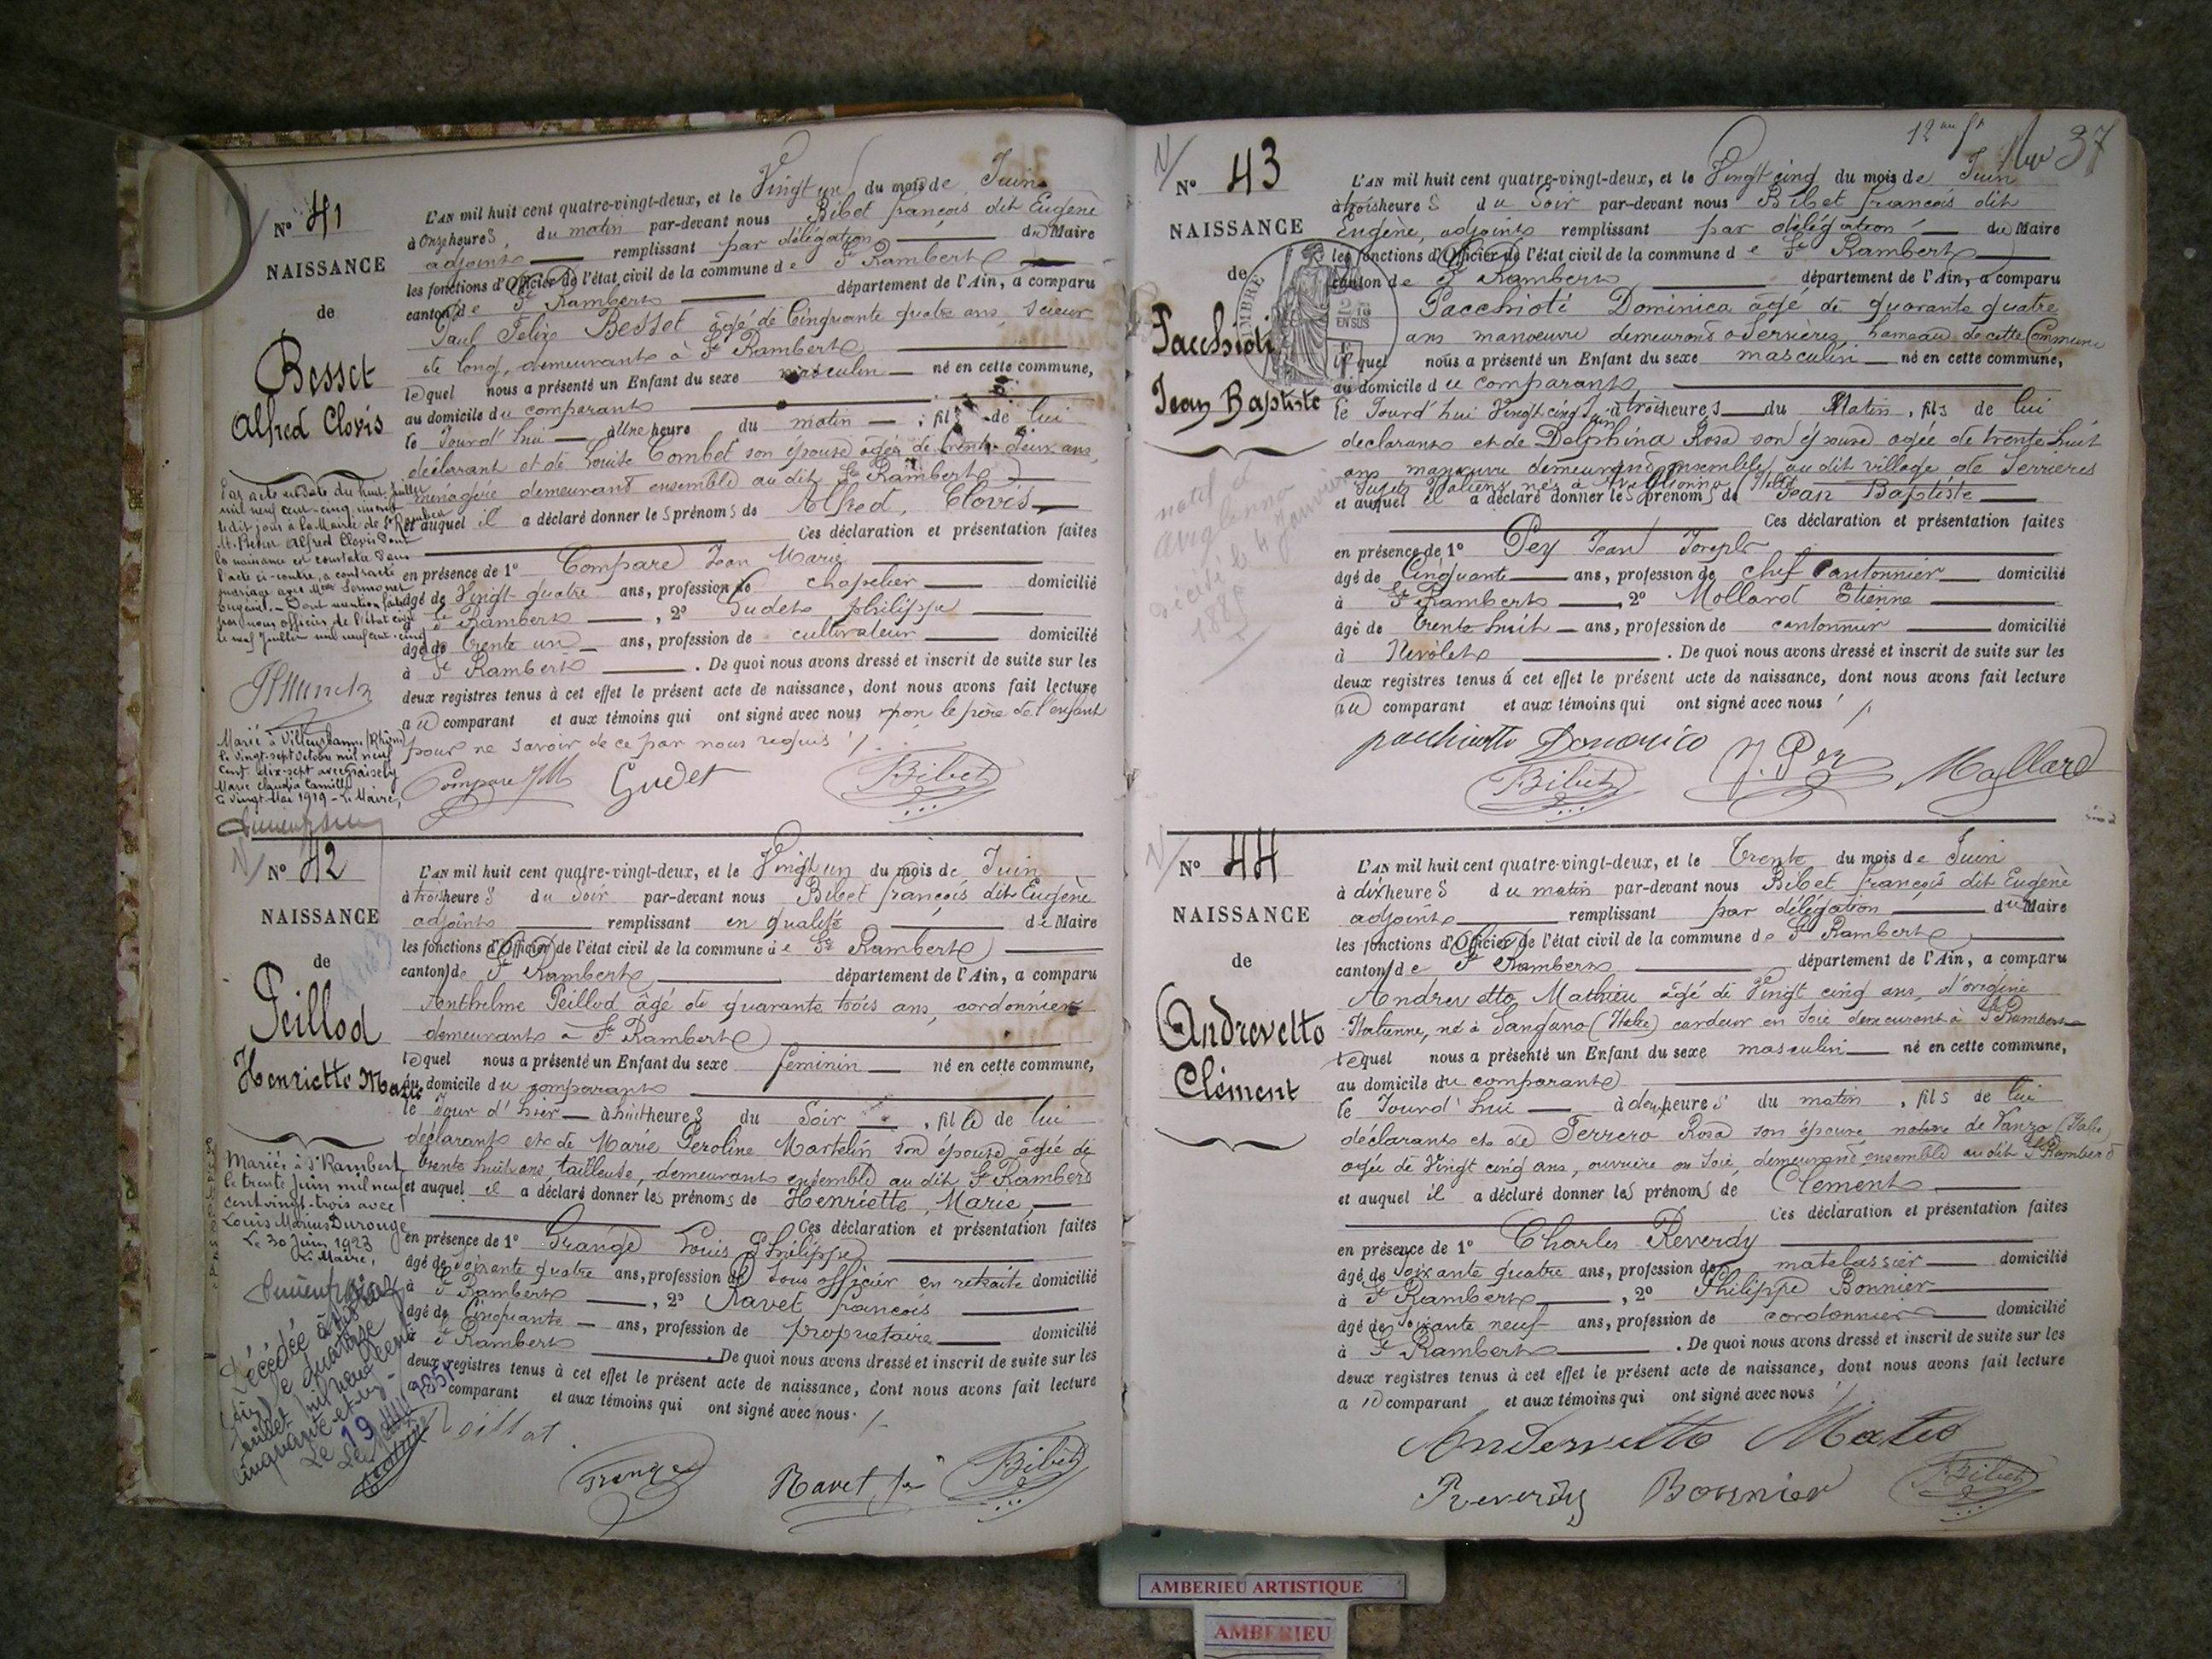 N° 41
NAISSANCE
de
Besset
Alfred Clovis
L'AN mil huit cent quatre-vingt-deux, et le Vingt un du mois de Juin
à onze heures, du matin par-devant nous Bibet françois dit Eugène
adjoint remplissant par délégation du Maire
les fonctions d'Officier de l'état civil de la commune de St Rambert
canton de St Rambert département de l'Ain, a comparu
Paul Félix Besset âgé de Cinquante quatre ans, scieur
de long, demeurant à St Rambert
lequel nous a présenté un Enfant du sexe masculin né en cette commune,
au domicile du comparant
le Jourd'hui à Une heure du matin, fils de lui
déclarant et de Louise Combet son épouse âgée de trente deux ans,
ménagère demeurant ensemble au dit St Rambert
et auquel il a déclaré donner les prénoms de Alfred, Clovis,
Ces déclaration et présentation faites
en présence de 1° Compare Jean Marie
âgé de Vingt-quatre ans, profession de chapelier domicilié
à St Rambert, 2° Gudet philippe
âgé de trente un ans, profession de cultivateur domicilié
à St Rambert. De quoi nous avons dressé et inscrit de suite sur les
deux registres tenus à cet effet le présent acte de naissance, dont nous avons fait lecture
au comparant et aux témoins qui ont signé avec nous non le père de l'enfant
pour ne savoir de ce par nous requis
Compare JM Gudet Bibet
Par acte en date du huit Juillet
mil neuf cent cinq
le dit jour à la Mairie de St Rambert
M. Besset Alfred Clovis dont
la naissance est constatée dans
l'acte ci-contre, a contracté
mariage avec Melle
Eugénie. Dont mention faite
par nous officier de l'état civil
le neuf Juillet mil neuf cent cinq
Marié à Villeurbanne (Rhône)
le vingt-sept Octobre mil neuf
cent dix-sept avec
Marie Claudia Camille
Le vingt Mai 1919 - Le Maire,
N° 42
NAISSANCE
de
Peillod
Henriette Marie
L'AN mil huit cent quatre-vingt-deux, et le Vingt un du mois de Juin
à trois heures du Soir par-devant nous Bibet françois dit Eugène
adjoint remplissant en qualité de Maire
les fonctions d'Officier de l'état civil de la commune de St Rambert
canton de St Rambert département de l'Ain, a comparu
Anthelme Peillod âgé de quarante trois ans, cordonnier
demeurant à St Rambert
lequel nous a présenté un Enfant du sexe féminin né en cette commune,
au domicile du comparant
le Jour d'hier à huit heures du Soir, fille de lui
déclarant et de Marie Peroline Martelin son épouse âgée de
trente huit ans, tailleuse, demeurant ensemble au dit St Rambert
et auquel il a déclaré donner les prénoms de Henriette, Marie,
Ces déclaration et présentation faites
en présence de 1° Grange Louis Philippe
âgé de Soixante quatre ans, profession de Sous officier en retraite domicilié
à St Rambert, 2° Ravet françois
âgé de Cinquante ans, profession de propriétaire domicilié
à St Rambert. De quoi nous avons dressé et inscrit de suite sur les
deux registres tenus à cet effet le présent acte de naissance, dont nous avons fait lecture
comparant et aux témoins qui ont signé avec nous.
Grange Ravet fois Bibet
Mariée à St Rambert
le trente Juin mil neuf
cent vingt-trois avec
Louis Marius Durouge
Le 30 Juin 1923
Le Maire,
Décédée à
(Ain) le quatorze
Juillet mil neuf cent
cinquante-et-un
Le 19 1951
N° 43
NAISSANCE
de
Pacchioti
Jean Baptiste
37
TIMBRE
EN SUS
L'AN mil huit cent quatre-vingt-deux, et le Vingt cinq du mois de Juin
à trois heures du Soir par-devant nous Bibet françois dit
Eugène, adjoint remplissant par délégation du Maire
les fonctions d'Officier de l'état civil de la commune de St Rambert
canton de St Rambert département de l'Ain, a comparu
Pacchioti Dominica âgé de quarante quatre
ans manoeuvre demeurant à Serrières, hameau de cette Commune
lequel nous a présenté un Enfant du sexe masculin né en cette commune,
au domicile du comparant
le Jourd'hui Vingt cinq Juin à trois heures du Matin, fils de lui
déclarant et de Delphina Rosa son épouse âgée de trente huit
ans manoeuvre demeurant ensemble au dit village de Serrières
Sujets Italiens nés à Aviglionna (Italie)
et auquel il a déclaré donner les prénoms de Jean Baptiste
Ces déclaration et présentation faites
en présence de 1° Pey Jean Joseph
âgé de Cinquante ans, profession de chef Cantonnier domicilié
à St Rambert, 2° Mollard Etienne
âgé de trente huit ans, profession de cantonnier domicilié
à Nivolet. De quoi nous avons dressé et inscrit de suite sur les
deux registres tenus à cet effet le présent acte de naissance, dont nous avons fait lecture
au comparant et aux témoins qui ont signé avec nous
pacchiotti Domenico
Bibet J. Pey Mollard
natif d
aviglanna
décédé le 4 Janvier
N° 44
NAISSANCE
de
Andrevetto
Clément
L'AN mil huit cent quatre-vingt-deux, et le Trente du mois de Juin
à dix heures du matin par-devant nous Bibet françois dit Eugène
adjoint remplissant par délégation du Maire
les fonctions d'Officier de l'état civil de la commune de St Rambert
canton de St Rambert département de l'Ain, a comparu
Andrevetto Mathieu âgé de Vingt cinq ans, d'origine
Italienne, né à Sangano (Italie) cardeur en Soie demeurant à St Rambert
lequel nous a présenté un Enfant du sexe masculin né en cette commune,
au domicile du comparant
le Jourd'hui à deux heures du matin, fils de lui
déclarant et de Ferrero Rosa son épouse native de Vanzo (Italie)
agée de Vingt cinq ans, ouvrière en Soie, demeurant ensemble au dit St Rambert
et auquel il a déclaré donner les prénoms de Clément
Ces déclaration et présentation faites
en présence de 1° Charles Reverdy
âgé de Soixante quatre ans, profession de matelassier domicilié
à St Rambert, 2° Philippe Bonnier
âgé de Soixante neuf ans, profession de cordonnier domicilié
à St Rambert. De quoi nous avons dressé et inscrit de suite sur les
deux registres tenus à cet effet le présent acte de naissance, dont nous avons fait lecture
au comparant et aux témoins qui ont signé avec nous
Andervetto Mateo
Reverdy Bonnier Bibet
AMBERIEU ARTISTIQUE
AMBERIEU